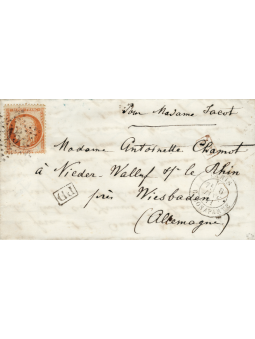 Pour Madame Jacot
Madame Antoinette Chamot
à Nieder-Walluf s/ le Rhin
près Wiesbaden
(Allemagne)
PD